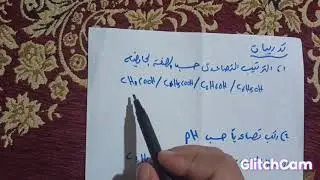 تدريبات
١) الترتيب التصاعدي حسب الصفة الحامضية
CH₃COOH / C₆H₅COOH / C₂H₅OH / C₆H₅OH
٢) رتب تصاعدياً حسب pH
GlitchCam